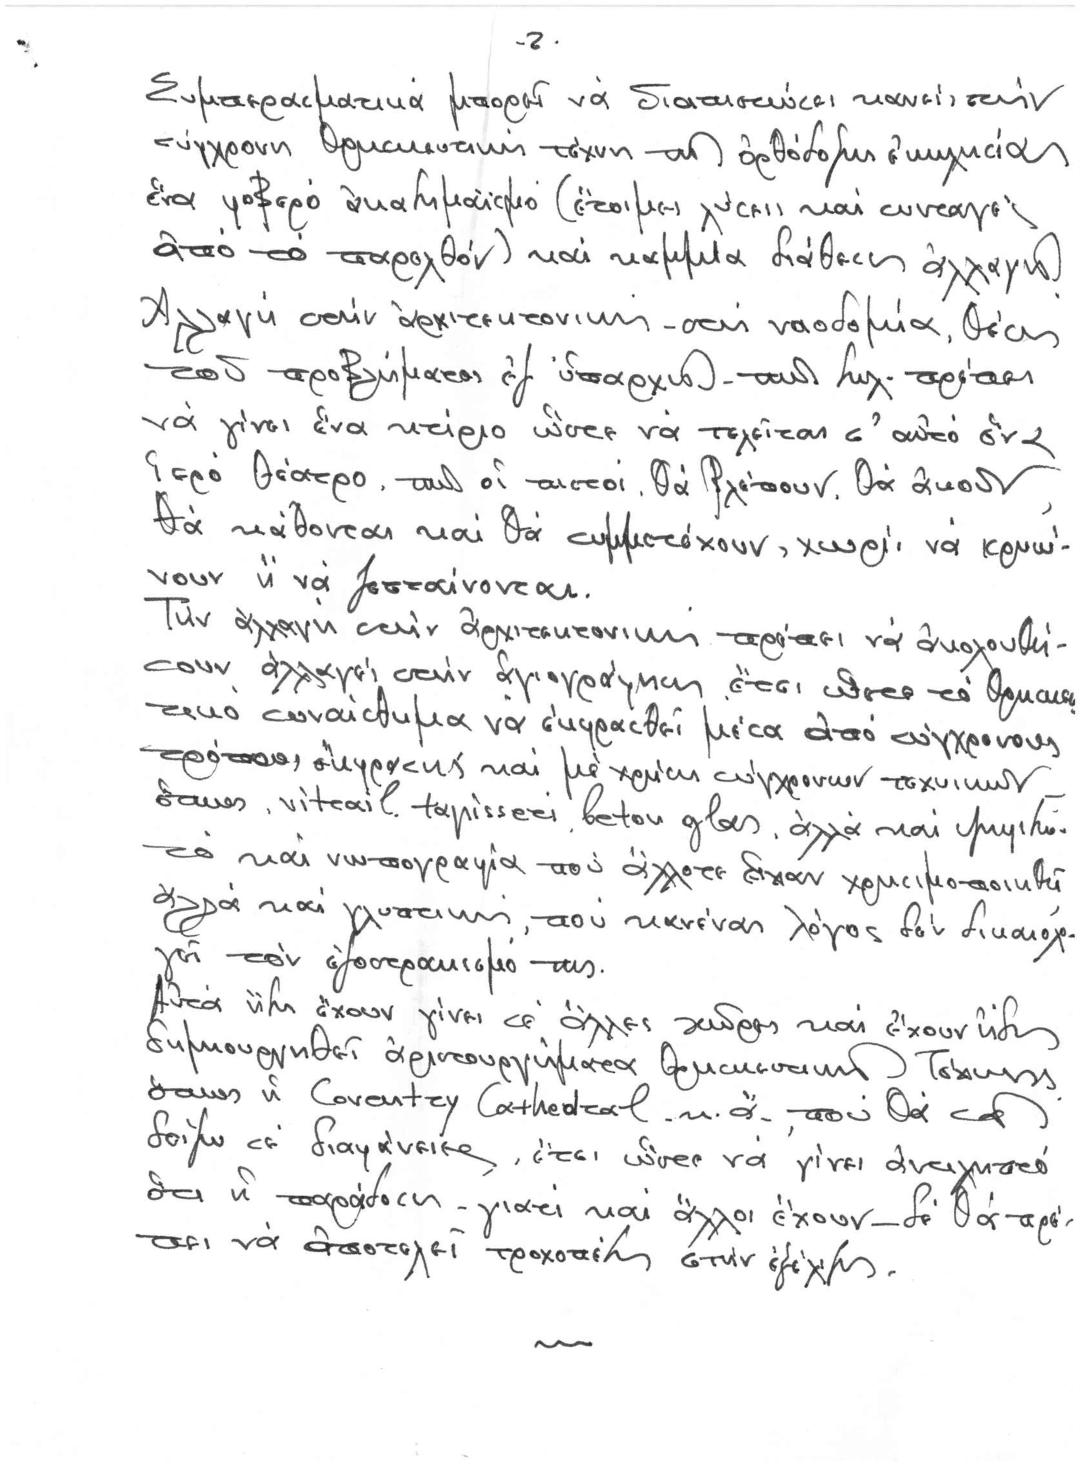 -2.
Συμπερασματικά μπορεῖ νά διαπιστώσει κανείς στήν
σύγχρονη θρησκευτική τέχνη τῆς ὀρθόδοξης ἐκκλησίας
ἕνα φοβερό ἀκαδημαϊσμό (ἕτοιμες λύσεις καί συνταγές
ἀπό τό παρελθόν) καί καμμία διάθεση ἀλλαγῆς.
Ἀλλαγή στήν ἀρχιτεκτονική - στή ναοδομία, θέση
τοῦ προβλήματος ἐξ ὑπαρχῆς - πώς δηλ. πρέπει
νά γίνει ἕνα κτίριο ὥστε νά τελεῖται σ' αὐτό ἕνα
ἱερό θέατρο, πώς οἱ πιστοί, θά βλέπουν, θά ἀκοῦν,
θά κάθονται καί θά συμμετέχουν, χωρίς νά κρυώ-
νουν ἤ νά ζεσταίνονται.
Τήν ἀλλαγή στήν ἀρχιτεκτονική πρέπει νά ἀκολουθή-
σουν ἀλλαγές στήν ἁγιογράφηση, ἔτσι ὥστε τό θρησκευ-
τικό συναίσθημα νά ἐκφρασθεῖ μέσα ἀπό σύγχρονους
τρόπους ἔκφρασης καί μέ χρήση σύγχρονων τεχνικῶν -
ὅπως, vitrail, tapisserei, beton glas, ἀλλά καί ψηφιδω-
τό καί νωπογραφία πού ἄλλοτε εἶχαν χρησιμοποιηθεῖ
ἀλλά καί γλυπτική, πού κανένας λόγος δέν δικαιολο-
γεῖ τόν ἐξοστρακισμό της.
Αὐτά ἤδη ἔχουν γίνει σέ ἄλλες χῶρες καί ἔχουν ἤδη
δημιουργηθεῖ ἀριστουργήματα θρησκευτικῆς Τέχνης
ὅπως ἡ Coventry Cathedral κ.ἄ. , πού θά σᾶς
δείξω σέ διαφάνειες, ἔτσι ὥστε νά γίνει ἀντιληπτό
ὅτι ἡ παράδοση - γιατί καί ἄλλοι ἔχουν - δέ θά πρέ-
πει νά ἀποτελεῖ τροχοπέδη στήν ἐξέλιξη.